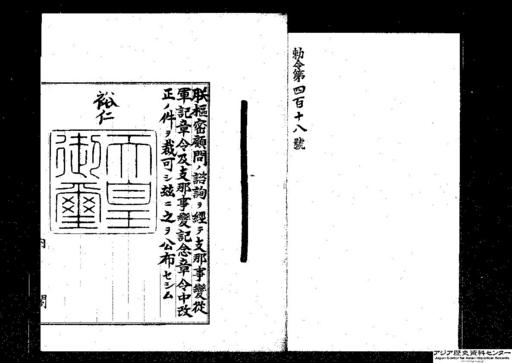 勅令第四百十八號
朕樞密顧問ノ諮詢ヲ經テ支那事變從
軍記章令及支那事變記念章令中改
正ノ件ヲ裁可シ玆ニ之ヲ公布セシム
裕仁
天皇
御璽
内閣
アジア歴史資料センター
Japan Center for Asian Historical Records